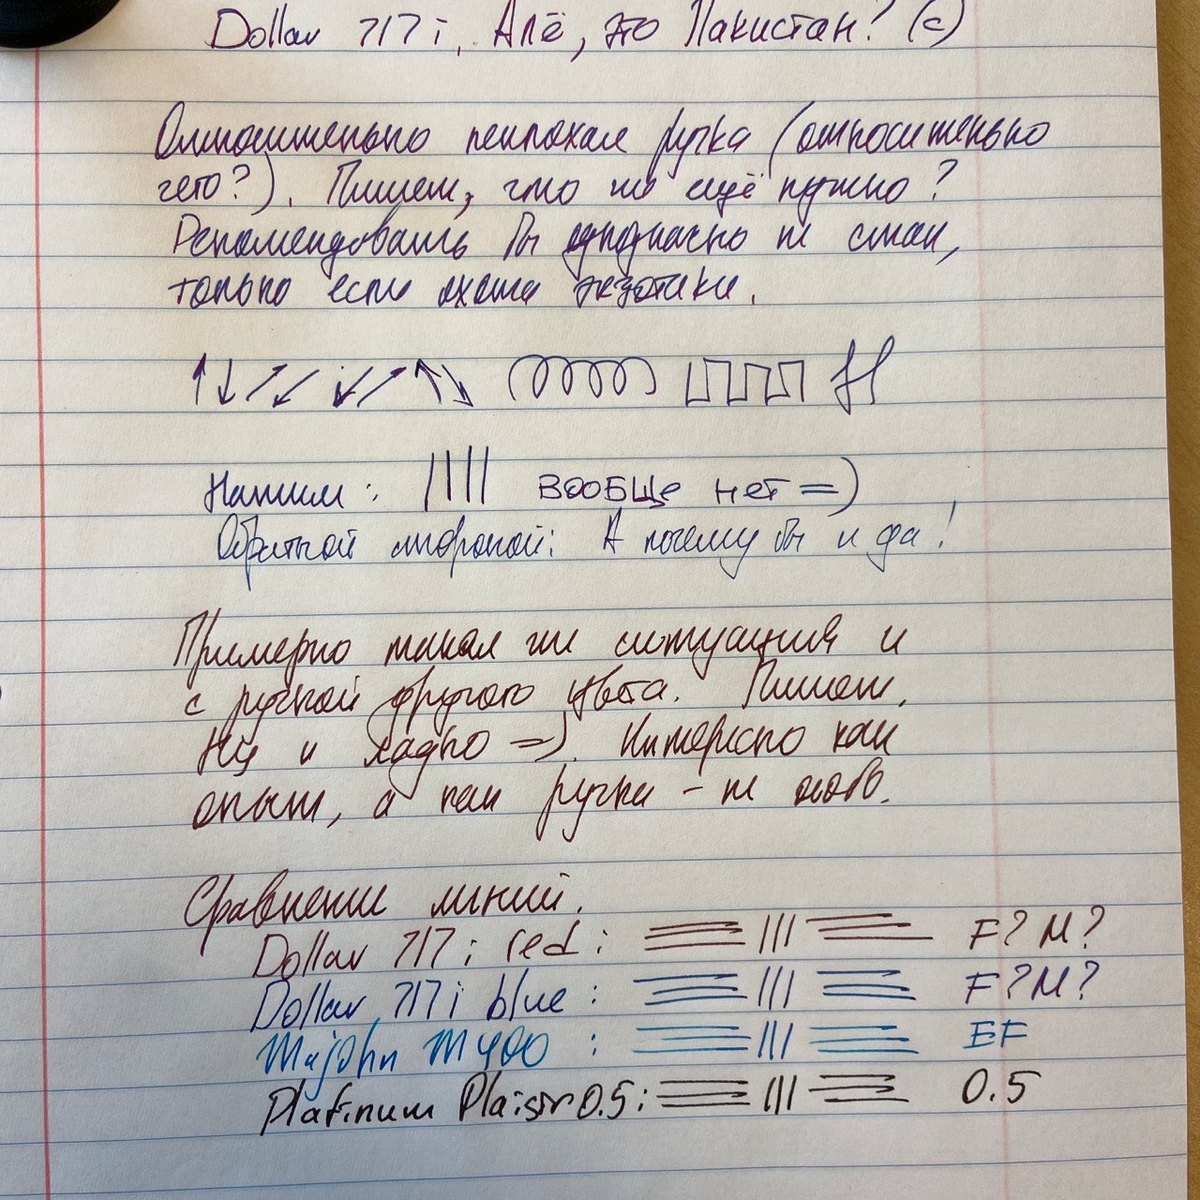 Dollar 717i, Алё, это Пакистан? (с)
Относительно неплохая ручка (относительно
чего?). Пишет, что же ещё нужно?
Рекомендовать бы однозначно не стал,
только если охота экзотики.
Нажим: |||| вообще нет =)
Обратной стороной: А почему бы и да!
Примерно такая же ситуация и
с ручкой другого цвета. Пишет,
ну и ладно =). Интересно как
опыт, а как ручка - не особо.
Сравнение линий.
Dollar 717i red: F? M?
Dollar 717i blue: F? M?
Majohn M400 : EF
Platinum Plaisir 0.5: 0.5